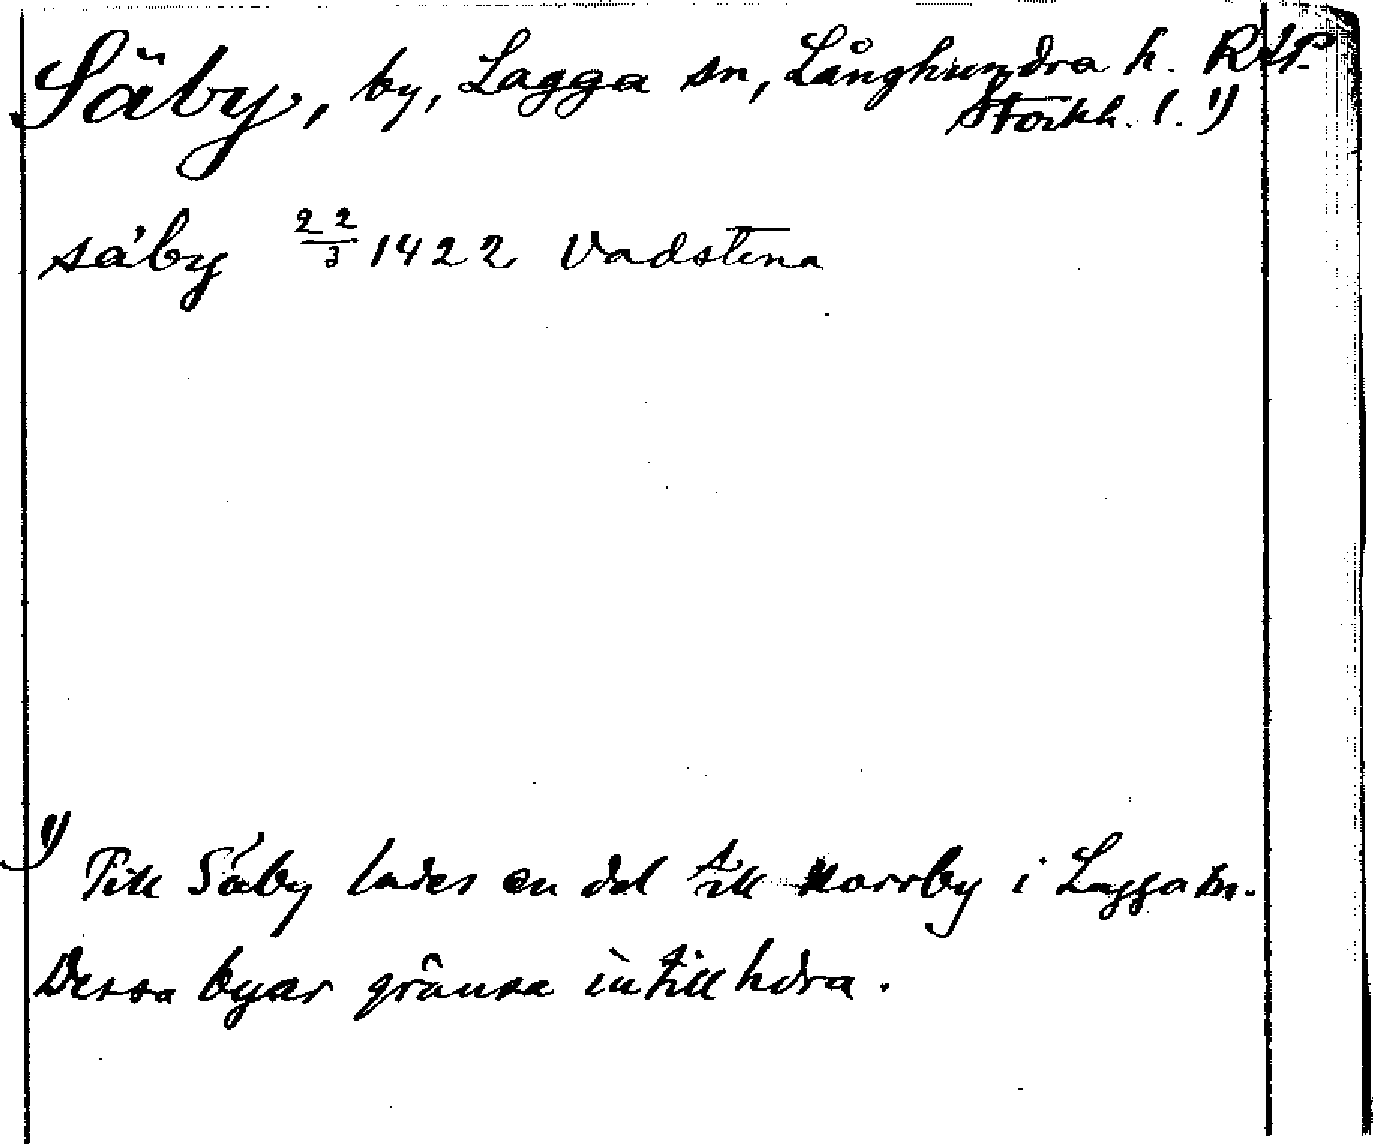 Säby, by, Lagga sn, Långhundra h.
Stockh. l. 1)
säby 22/3 1422 Vadstena
1) Till Säby lades en del till Norrby i Lagga sn.
Dessa byar gränsa intill hdra.